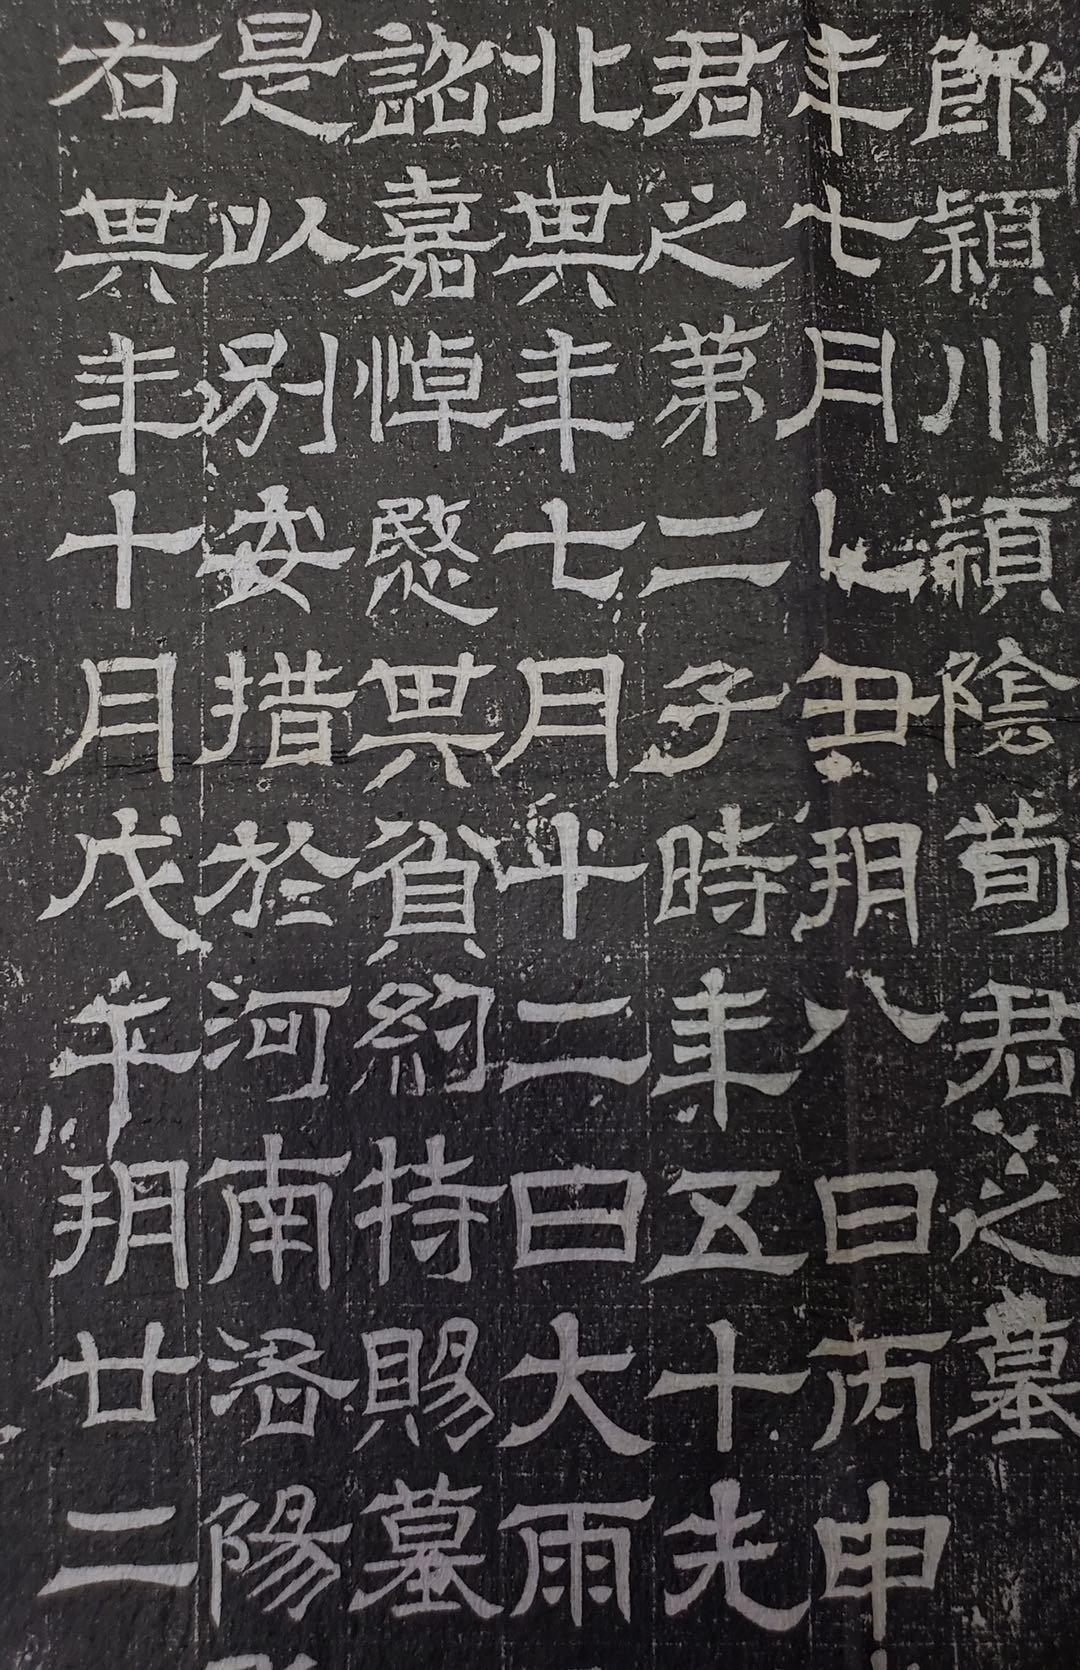 郎潁川潁陰荀君之墓
年七月乙丑朔八日丙申
君之第二子時年五十先
北其年七月十二日大雨
詔嘉悼愍其貧約特賜墓
是以別安措於河南洛陽
右其年十月戊午朔廿二